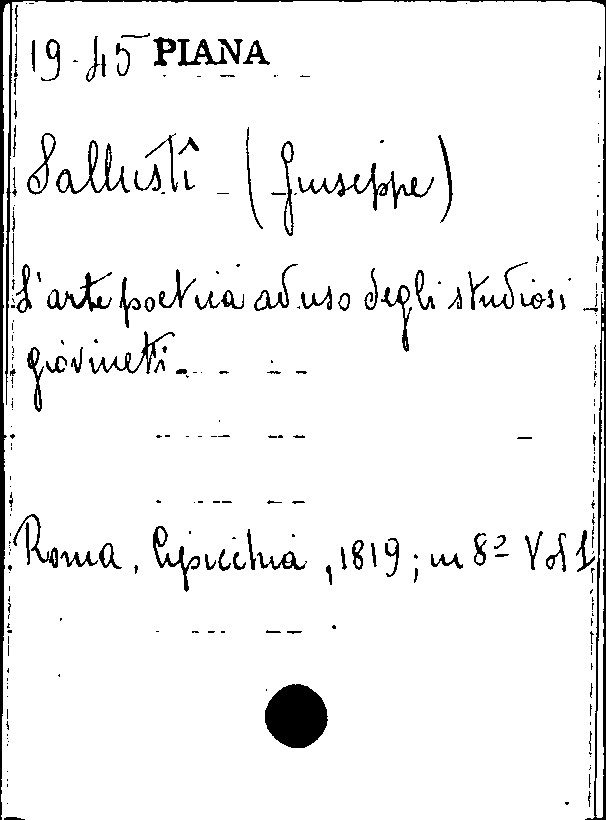 19-45 PIANA
Sallustî (Giuseppe)
L'arte poetica ad uso degli studiosi
giovineti.
Roma, Cipicchia, 1819; in 8º Vol 1